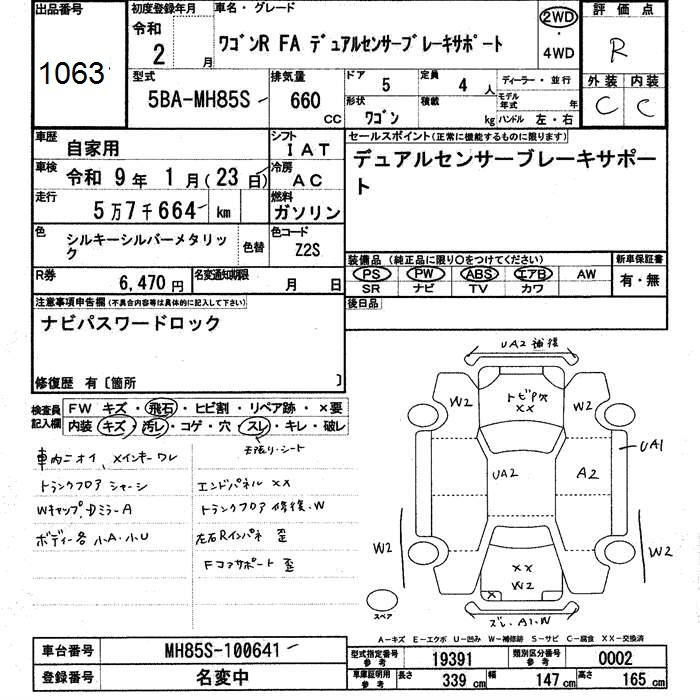 出品番号
1063
初度登録年月
令和
2 月
車名・グレード
ワゴンR FA デュアルセンサーブレーキサポート
2WD
・
4WD
評価点
R
外装 内装
C C
型式
5BA-MH85S
排気量
660 CC
ドア 5
定員 4 人
ディーラー・並行
形状 ワゴン
積載 kg
モデル年式 年
ハンドル 左・右
車歴 自家用
シフト IAT
車検 令和 9年 1月(23日)
冷房 AC
走行 5万7千664 km
燃料 ガソリン
色 シルキーシルバーメタリック
色替
色コード Z2S
R券 6,470円
名変通知期限 月 日
セールスポイント(正常に機能するものに限ります)
デュアルセンサーブレーキサポート
装備品 (純正品に限り〇をつけてください)
PS PW ABS エアB AW
SR ナビ TV カワ
新車保証書
有・無
後日品
注意事項申告欄(不具合内容等は具体的に記入して下さい)
ナビパスワードロック
修復歴 有〔箇所 〕
検査員記入欄
FW キズ・飛石・ヒビ割・リペア跡・×要
内装 キズ・汚レ・コゲ・穴・スレ・キレ・破レ
天張り・シート
車内ニオイ、メインキーワレ
トランクフロア シャーシ
Wキャップ、DミラーA
ボディー各 小A・小U
エンドパネル ××
トランクフロア 修復、W
左右Rインパネ 歪
Fコアサポート 歪
UA2 補修
W2
トビP穴
××
W2
UA1
UA2
A2
W2
W2
××
W2
×
スレ、A1、W
スペア
A-キズ E-エクボ U-凹み W-補修跡 S-サビ C-腐食 XX-交換済
車台番号 MH85S-100641
登録番号 名変中
型式指定番号 参考 19391
類別区分番号 参考 0002
車庫証明用 参考 長さ 339 cm 幅 147 cm 高さ 165 cm